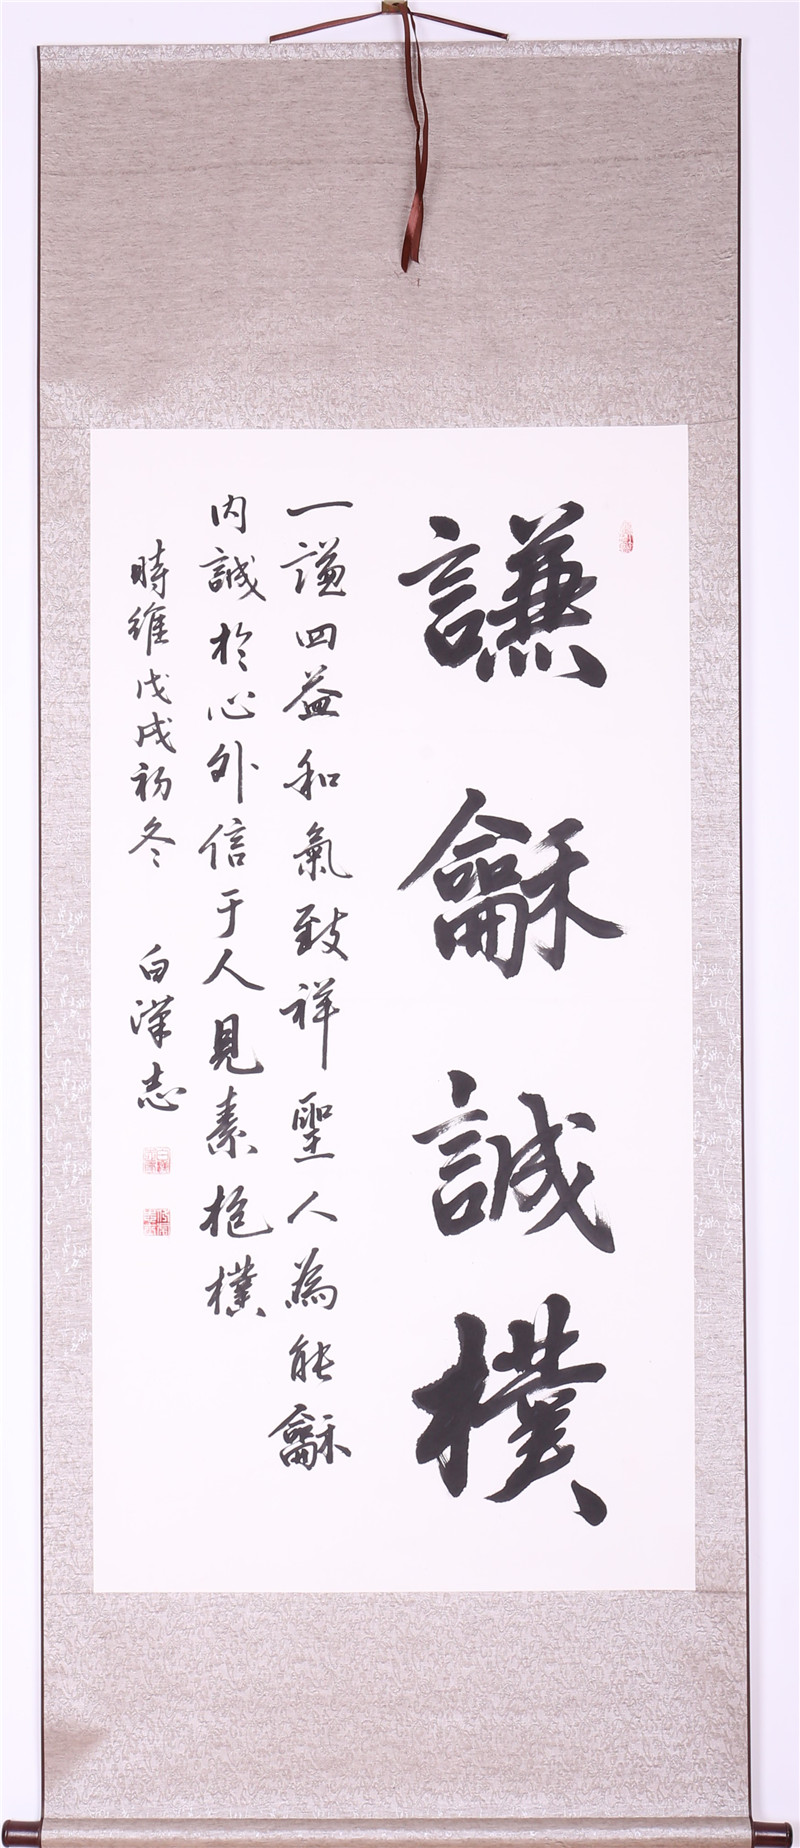 謙龢誠樸
一謙四益和氣致祥聖人為能龢
内誠於心外信于人見素抱樸
時維戊戌初冬 白漢志